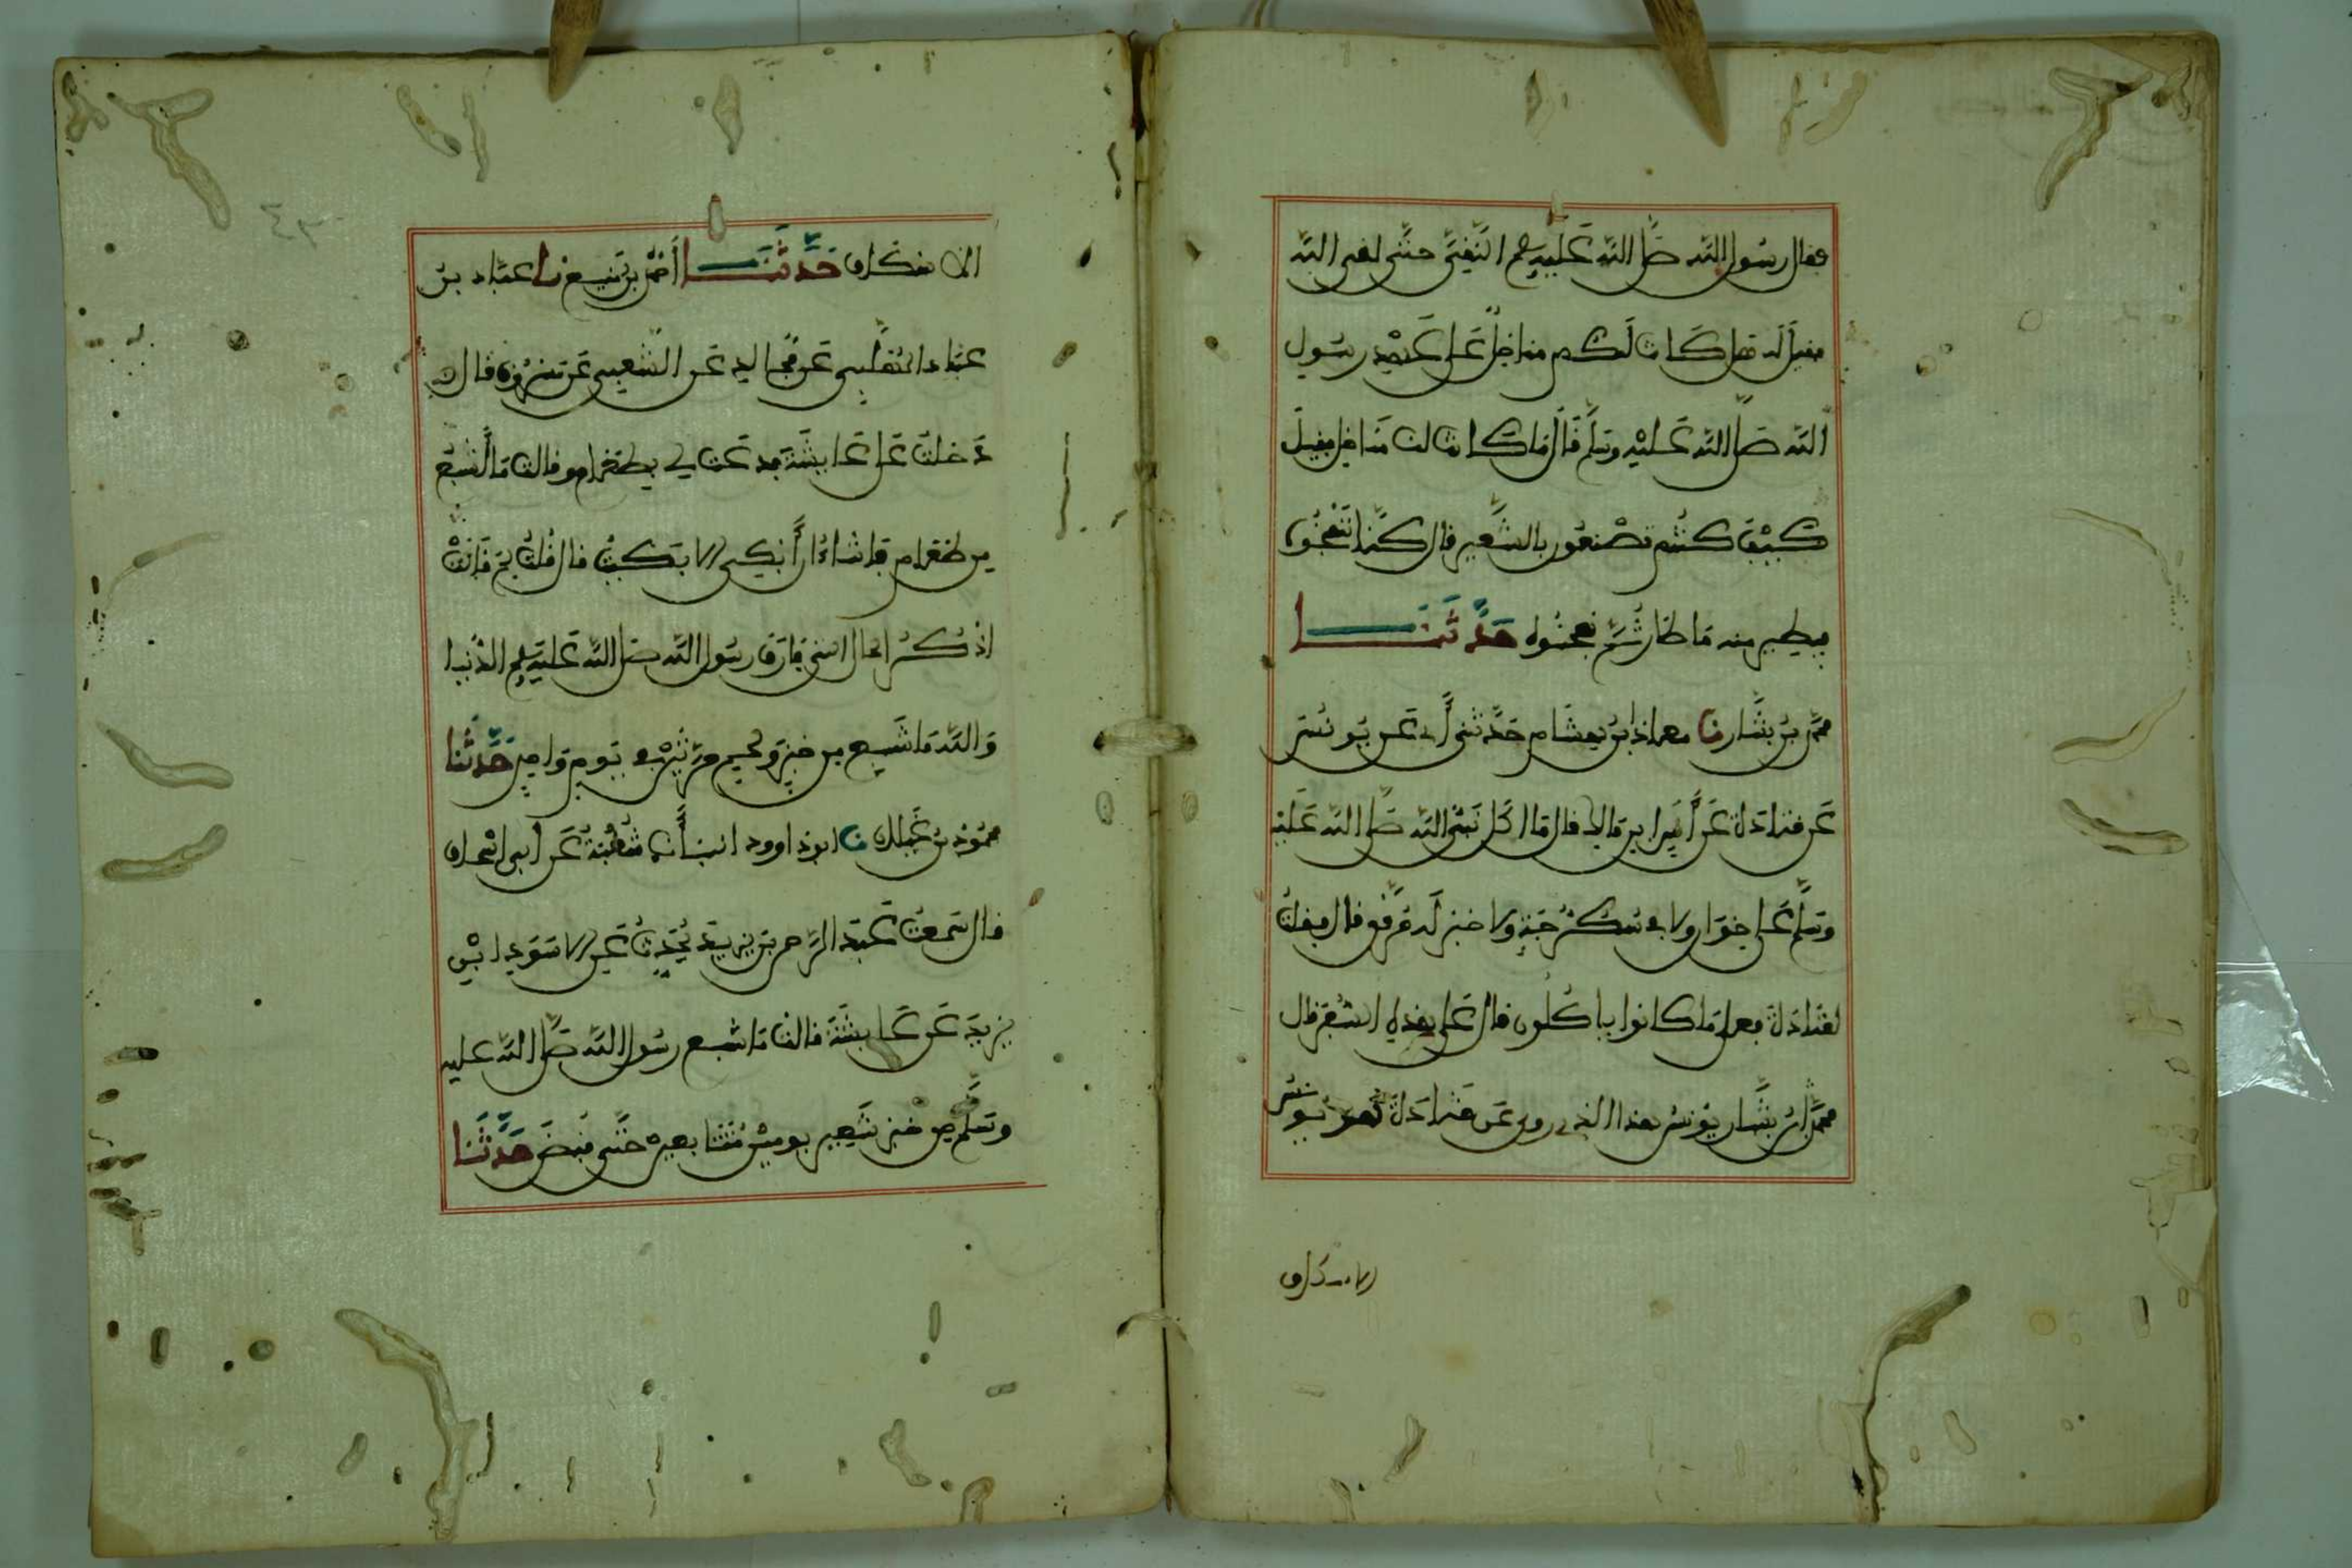 فقال رسول الله صلى الله عليه وسلم النقي حتى لقي الله
فقيل له هل كانت لكم مناخل على عهد رسول
الله صلى الله عليه وسلم قال ما كانت لنا مناخل فقيل
كيف كنتم تصنعون بالشعير قال كنا ننفخه
فيطير منه ما طار ثم نعجنه حدثنا
محمد بن بشار نا معاذ ابن هشام حدثني أبي عن يونس
عن قتادة عن أنس ابن مالك قال ما أكل نبي الله صلى الله عليه
وسلم على خوان ولا في سكرجة ولا خبز له مرقق قال فقلت
لقتادة فعلى ما كانوا ياكلون قال على هذه السفر قال
محمد ابن بشار يونس هذا الذي روى عن قتادة هو يونس
الاسكاف
الاسكاف حدثنا أحمد بن منيع نا عباد بن
عباد المهلبي عن مجالد عن الشعبي عن مسروق قال
دخلت على عايشة فدعت لي بطعام وقالت ما أشبع
من طعام فأشاء أن أبكي الا بكيت قال قلت لم قالت
اذكر الحال التي فارق رسول الله صلى الله عليه وسلم الدنيا
والله ما شبع من خبز ولحم مرتين في يوم واحد حدثنا
محمود بن غيلان نا ابو داوود انبأنا شعبة عن أبي اسحاق
قال سمعت عبد الرحمن بن يزيد يحدث عن الاسود ابن
يزيد عن عايشة قالت ما شبع رسول الله صلى الله عليه
وسلم من خبز شعير يومين متتابعين حتى قبض حدثنا